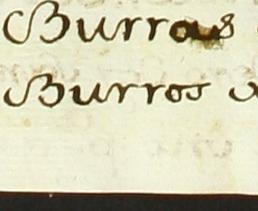 Burras
Burros